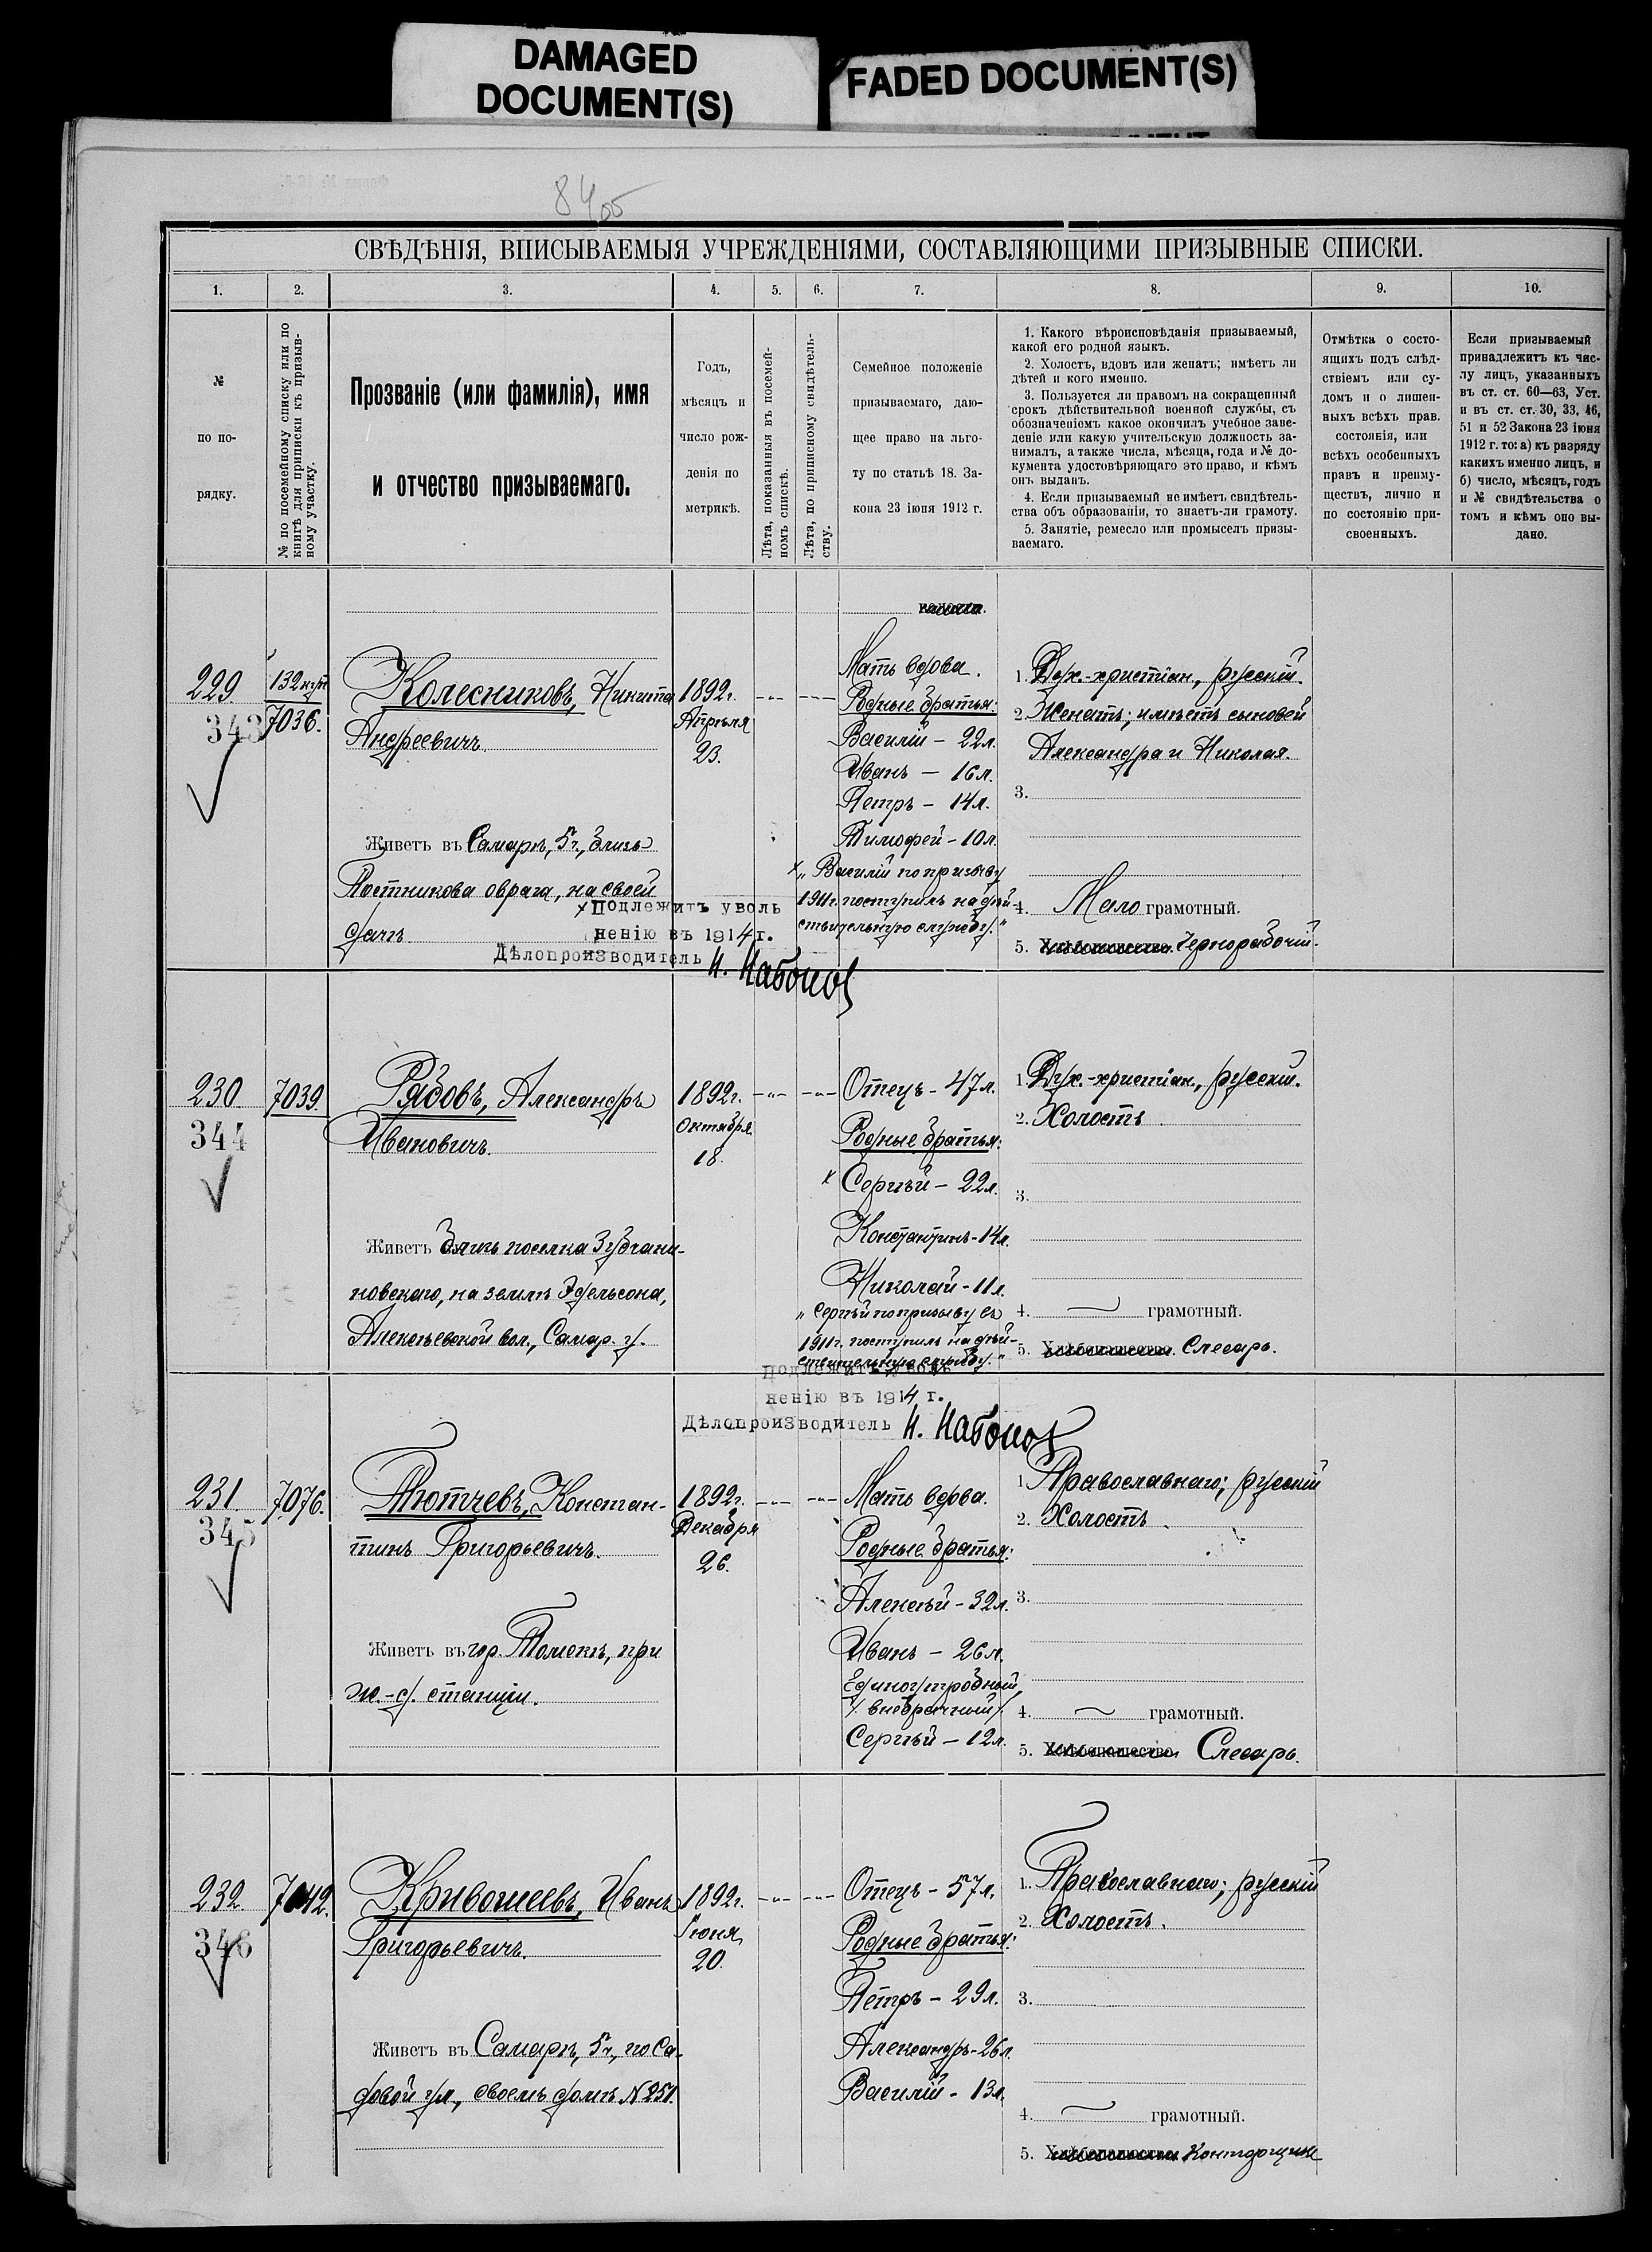 DAMAGED
DOCUMENT(S)
FADED DOCUMENT(S)
84
СВѢДѢНІЯ, ВПИСЫВАЕМЫЯ УЧРЕЖДЕНІЯМИ, СОСТАВЛЯЮЩИМИ ПРИЗЫВНЫЕ СПИСКИ.
1. 2. 3. 4. 5. 6. 7. 8. 9. 10.
№
по по-
рядку.
№ по посемейному списку или по
книгѣ для приписки къ призыв-
ному участку.
Прозваніе (или фамилія), имя
и отчество призываемаго.
Годъ,
мѣсяцъ и
число рож-
денія по
метрикѣ.
Лѣта, показанныя въ посемей-
номъ спискѣ.
Лѣта, по приписному свидѣтель-
ству.
Семейное положеніе
призываемаго, даю-
щее право на льго-
ту по статьѣ 18. За-
кона 23 іюня 1912 г.
1. Какого вѣроисповѣданія призываемый,
какой его родной языкъ.
2. Холостъ, вдовъ или женатъ; имѣетъ ли
дѣтей и кого именно.
3. Пользуется ли правомъ на сокращенный
срокъ дѣйствительной военной службы, съ
обозначеніемъ какое окончилъ учебное заве-
деніе или какую учительскую должность за-
нималъ, а также числа, мѣсяца, года и № до-
кумента удостовѣряющаго это право, и кѣмъ
онъ выданъ.
4. Если призываемый не имѣетъ свидѣтель-
ства объ образованіи, то знаетъ-ли грамоту.
5. Занятіе, ремесло или промыселъ призы-
ваемаго.
Отмѣтка о состо-
ящихъ подъ слѣд-
ствіемъ или су-
домъ и о лишен-
ныхъ всѣхъ прав.
состоянія, или
всѣхъ особенныхъ
правъ и преиму-
ществъ, лично и
по состоянію при-
своенныхъ.
Если призываемый
принадлежитъ къ чис-
лу лицъ, указанныхъ
въ ст. ст. 60—63, Уст.
и въ ст. ст. 30, 33, 46,
51 и 52 Закона 23 іюня
1912 г. то: а) къ разряду
какихъ именно лицъ, и
б) число, мѣсяцъ, годъ
и № свидѣтельства о
томъ и кѣмъ оно вы-
дано.
229.
343
7036.
Колесниковъ, Никита
Андреевичъ.
Живетъ въ Самарѣ, 5ч., близь
Постникова оврага, на своей
дачѣ.
1892г.
Апрѣля
23.
Мать вдова.
Родные братья:
Василій – 22л.
Иванъ – 16л.
Петръ – 14л.
Тимофей – 10л.
х „Василій по призыву
1911г. поступилъ на дѣй-
ствительную службу."
х Подлежитъ уволь
ненію въ 1914 г.
Дѣлопроизводитель
1. Дух.-христіан., русскій.
2. Женатъ; имѣетъ сыновей
Александра и Николая.
3.
4. Мало грамотный.
5. Хлѣбопашество. Чернорабочій.
230
344
7039.
Рябовъ, Александръ
Ивановичъ.
Живетъ близь поселка Зубчани-
новскаго, на землѣ Эдельсона,
Алексѣевской вол., Самар. у.
1892г.
Октября
18.
Отецъ – 47л.
Родные братья:
х Сергѣй – 22л.
Константинъ – 14л.
Николай – 11л.
„Сергѣй по призыву съ
1911г. поступилъ на дѣй-
ствительную службу."
Подлежитъ уволь
ненію въ 1914 г.
Дѣлопроизводитель
1. Дух.-христіан., русскій.
2. Холостъ
3.
4. грамотный.
5. Хлѣбопашество. Слесарь.
231.
345
7076.
Тютчевъ, Констан-
тинъ Григорьевичъ.
Живетъ въ гор. Томскѣ, при
ж.-д. станціи.
1892г.
Декабря
26.
Мать вдова.
Родные братья:
Алексѣй – 32л.
Иванъ – 26л.
Единоутробный
/внебрачный/.
Сергѣй – 12л.
1. Православнаго; русскій
2. Холостъ.
3.
4. грамотный.
5. Хлѣбопашество. Слесарь.
232.
346
7042.
Кривошеевъ, Иванъ
Григорьевичъ.
Живетъ въ Самарѣ, 5ч., по Са-
довой ул., своемъ домѣ № 251.
1892г.
Іюня
20.
Отецъ – 57л.
Родные братья:
Петръ – 29л.
Александръ – 26л.
Василій – 13л.
1. Православнаго; русскій
2. Холостъ.
3.
4. грамотный.
5. Хлѣбопашество. Конторщикъ